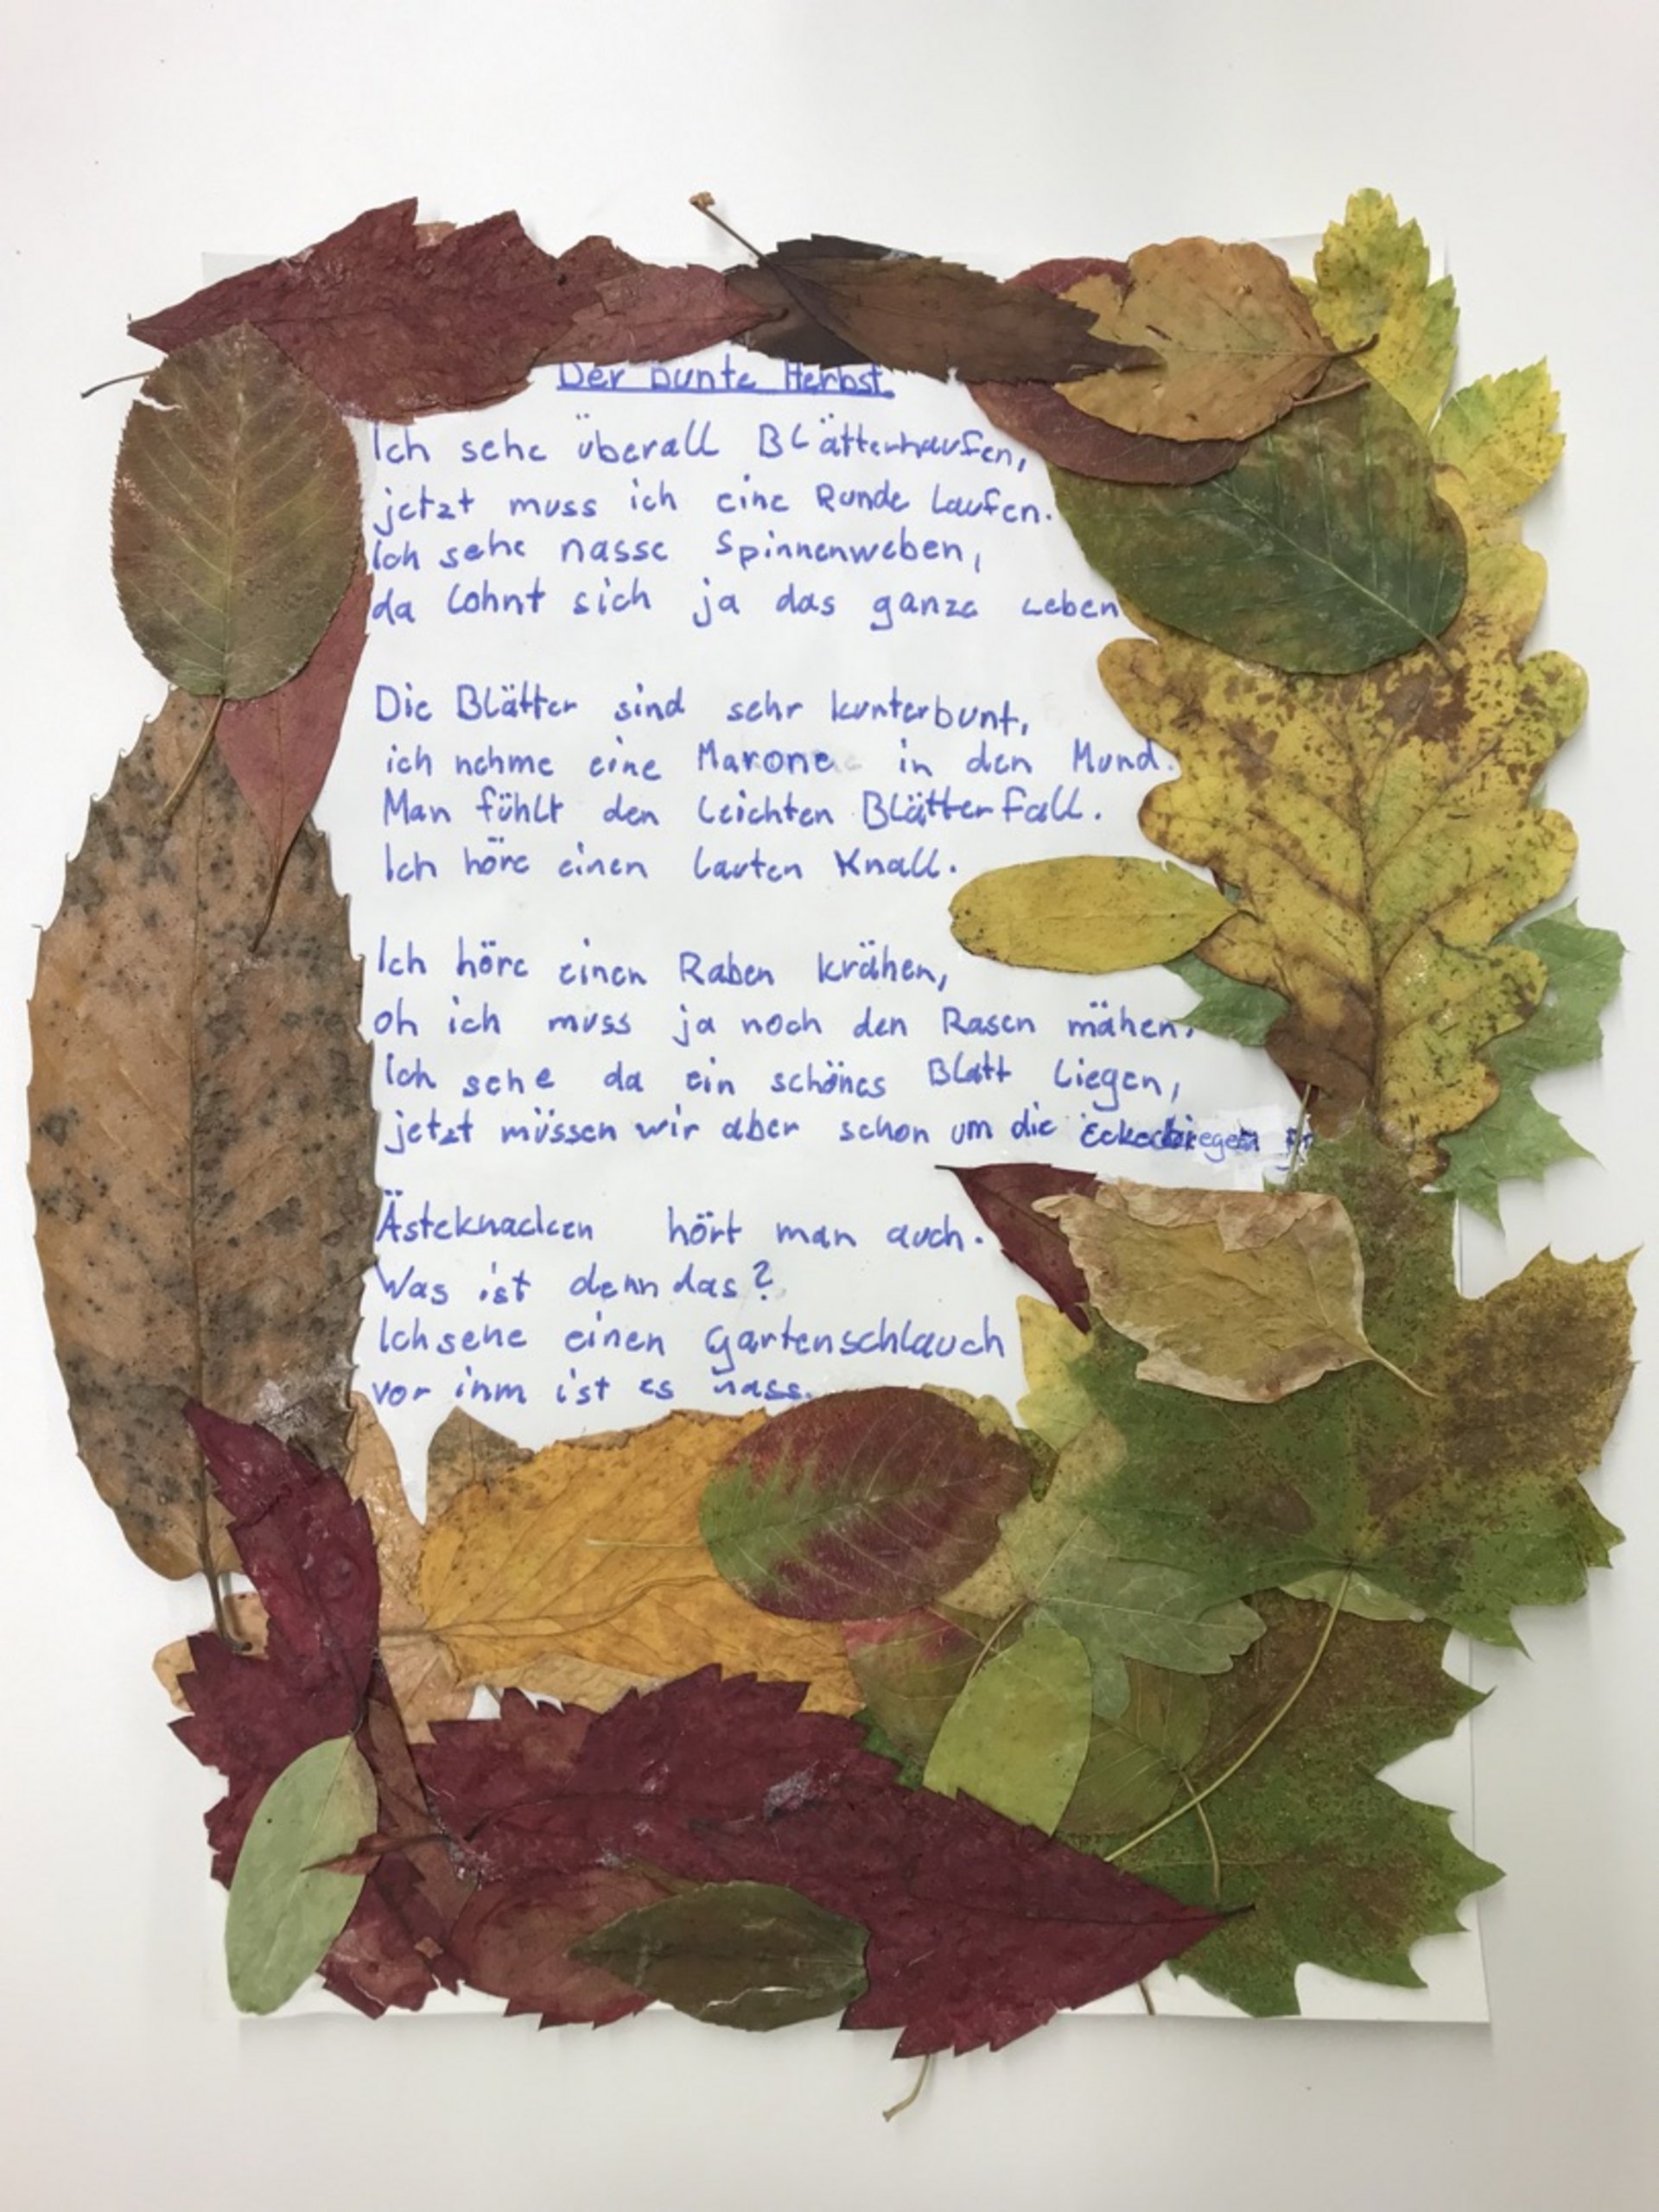 Der bunte Herbst
Ich sehe überall Blätterhaufen,
jetzt muss ich eine Runde laufen.
Ich sehe nasse Spinnenweben,
da lohnt sich ja das ganze Leben
Die Blätter sind sehr kunterbunt,
ich nehme eine Marone in den Mund.
Man fühlt den leichten Blätterfall.
Ich höre einen lauten Knall.
Ich höre einen Raben krähen,
oh ich muss ja noch den Rasen mähen.
Ich sehe da ein schönes Blatt liegen,
jetzt müssen wir aber schon um die Ecke biegen
Ästeknacken hört man auch.
Was ist denn das?
Ich sehe einen Gartenschlauch
vor ihm ist es nass.